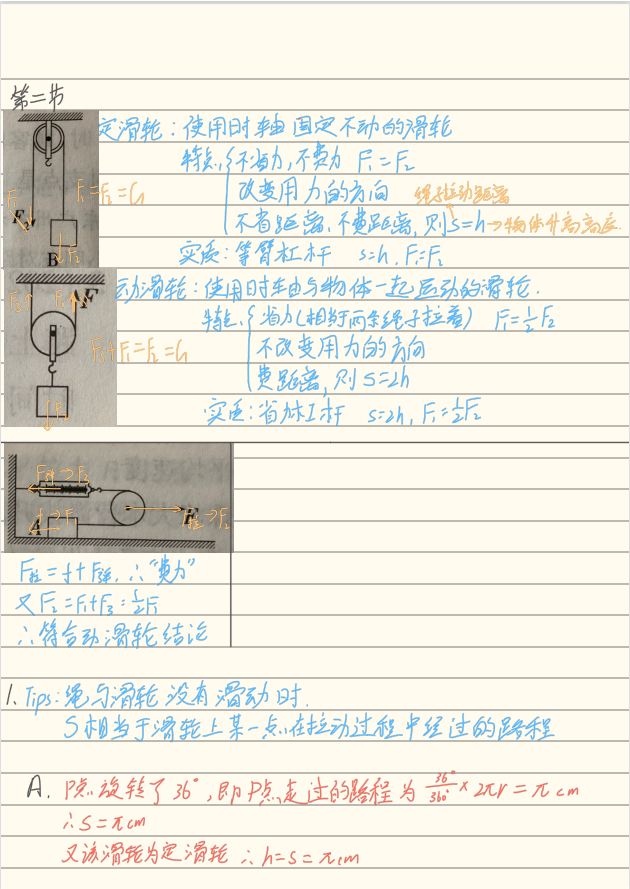 第二节
定滑轮：使用时轴固定不动的滑轮
特点 不省力，不费力 F₁=F₂
F₁=F₂=G
改变用力的方向 绳子拉动距离
不省距离、不费距离，则S=h→物体升高高度
实质：等臂杠杆 s=h，F₁=F₂
B F₂
动滑轮：使用时轴与物体一起运动的滑轮．
特点 省力（相当于两条绳子拉着） F₁=½F₂
F₁+F₁=F₂=G
不改变用力的方向
费距离，则S=2h
实质：省力杠杆 s=2h，F₁=½F₂
A
F拉=f+F弹，∴“费力”
又F₂=F₁+F₃=½F₁
∴符合动滑轮结论
1. Tips：绳与滑轮没有滑动时．
S相当于滑轮上某一点在拉动过程中经过的路程
A. P点旋转了36°，即P点走过的路程为 36°/360° × 2πr=π cm
∴S=πcm
又该滑轮为定滑轮 ∴h=s=πcm